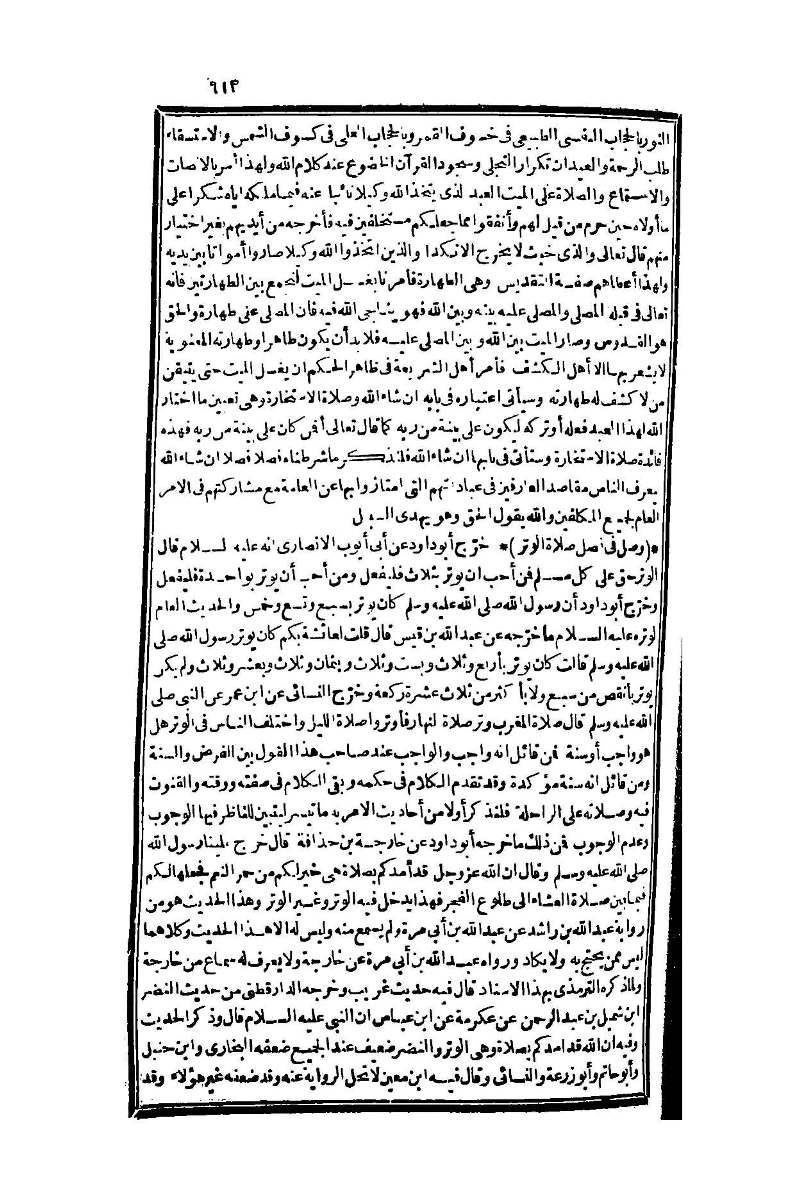 ٦١٣
النور بالحجاب النفسى الطبيعى فى خسوف القمر وبالحجاب العلى فى كسوف الشمس والاستسقاء
طلب الرحمة والعيدان تكرار التجلى وسجود القرآن الخضوع عند كلام الله ولهذا أمر بالانصات
والاستماع والصلاة على الميت العبد لذى يتخذ الله وكيلا نائبا عنه فيما ملكه اياه شكرا على
ما أولاه حين حرم من قيل لهم وأنفقوا مما جعلكم مستخلفين فيه فأخرجه من أيديهم بغير اختيار
منهم قال تعالى والذى خبث لا يخرج الا نكدا والذين اتخذوا الله وكيلا صاروا أمواتا بين يديه
ولهذا أعطاهم صفة التقديس وهى الطهارة فأمرنا بغسل الميت لنجمع بين الطهارتين فانه
تعالى فى قبلة المصلى والمصلى عليه بينه وبين الله فهو يناجى الله فيه فان المصلى على طهارة والحق
هو القدوس وصار الميت بين الله وبين المصلى عليه فلا بد أن يكون طاهرا وطهارته المعنوية
لا يشعر بها الا أهل الكشف فأمر أهل الشريعة فى ظاهر الحكم ان يغسل الميت حتى يتيقن
من لا كشف له طهارته وسيأتى اعتباره فى بابه ان شاء الله وصلاة الاستخارة وهى تعيين ما اختار
الله لهذا العبد فعله أو تركه ليكون على بينة من ربه كما قال تعالى أفمن كان على بينة من ربه فهذه
فائدة صلاة الاستخارة وستأتى فى بابها ان شاء الله فلنذكر ما شرطناه فصلا فصلا ان شاء الله
يعرف الناس مقاصد العارفين فى عباداتهم التى امتازوا بها عن العامة مع مشاركتهم فى الامر
العام لجميع المكلفين والله يقول الحق وهو يهدى السبيل
*(وصل فى فصل صلاة الوتر)* خرّج أبو داود عن أبى أيوب الانصارى انه عليه لسلام قال
الوتر حق على كل مسلم فمن أحب ان يوتر بثلاث فليفعل ومن أحب أن يوتر بواحدة فليفعل
وخرّج أبو داود أن رسول الله صلى الله عليه وسلم كان يوتر بسبع وتسع وخمس والحديث العام
لوتره عليه السلام ما خرّجه عن عبد الله بن قيس قال قلت لعائشة بكم كان يوتر رسول الله صلى
الله عليه وسلم قالت كان يوتر بأربع وثلاث وبست وثلاث وبثمان وثلاث وبعشر وثلاث ولم يكن
يوتر بأنقص من سبع ولا بأكثر من ثلاث عشرة ركعة وخرّج النسائى عن ابن عمر عن النبى صلى
الله عليه وسلم قال صلاة المغرب وتر صلاة لنهار فأوتروا صلاة الليل واختلف الناس فى الوتر هل
هو واجب أو سنة فمن قائل انه واجب والواجب عند صاحب هذا القول بين الفرض والسنة
ومن قائل انه سنة مؤكدة وقد تقدم الكلام فى حكمه وبقى الكلام فى صفته ووقته والقنوت
فيه وصلاته على الراحلة فلنذكر أولا من أحاديث الامر به ما تيسر ليتبين للناظر فيها الوجوب
وعدم الوجوب فمن ذلك ما خرجه أبو داود عن خارجة بن حذافة قال خرج لينا رسول الله
صلى الله عليه وسلم وقال ان الله عز وجل قد أمدكم بصلاة هى خير لكم من حمر النعم فجعلها لكم
فيما بين صلاة العشاء الى طلوع الفجر فهذا يدخل فيه الوتر وغير الوتر وهذا الحديث هو من
رواية عبد الله بن راشد عن عبد الله بن أبى مرة ولم يسمع منه وليس له الا هذا الحديث وكلاهما
ليس ممن يحتج به ولا يكاد ورواه عبد الله بن أبى مرة عن خارجة ولا يعرف له سماع من خارجة
ولما ذكره الترمذى بهذا الاسناد قال فيه حديث غريب وخرجه الدارقطنى من حديث النضر
ابن شميل بن عبد الرحمن عن عكرمة عن ابن عباس ان النبى عليه السلام قال وذكر الحديث
وفيه ان الله قد امدكم بصلاة وهى الوتر والنضر ضعيف عند الجميع ضعفه البخارى وابن حنبل
وأبو حاتم وأبو زرعة والنسائى وقال فيه ابن معين لا تحل الرواية عنه وقد ضعفه غير هؤلاء وقد